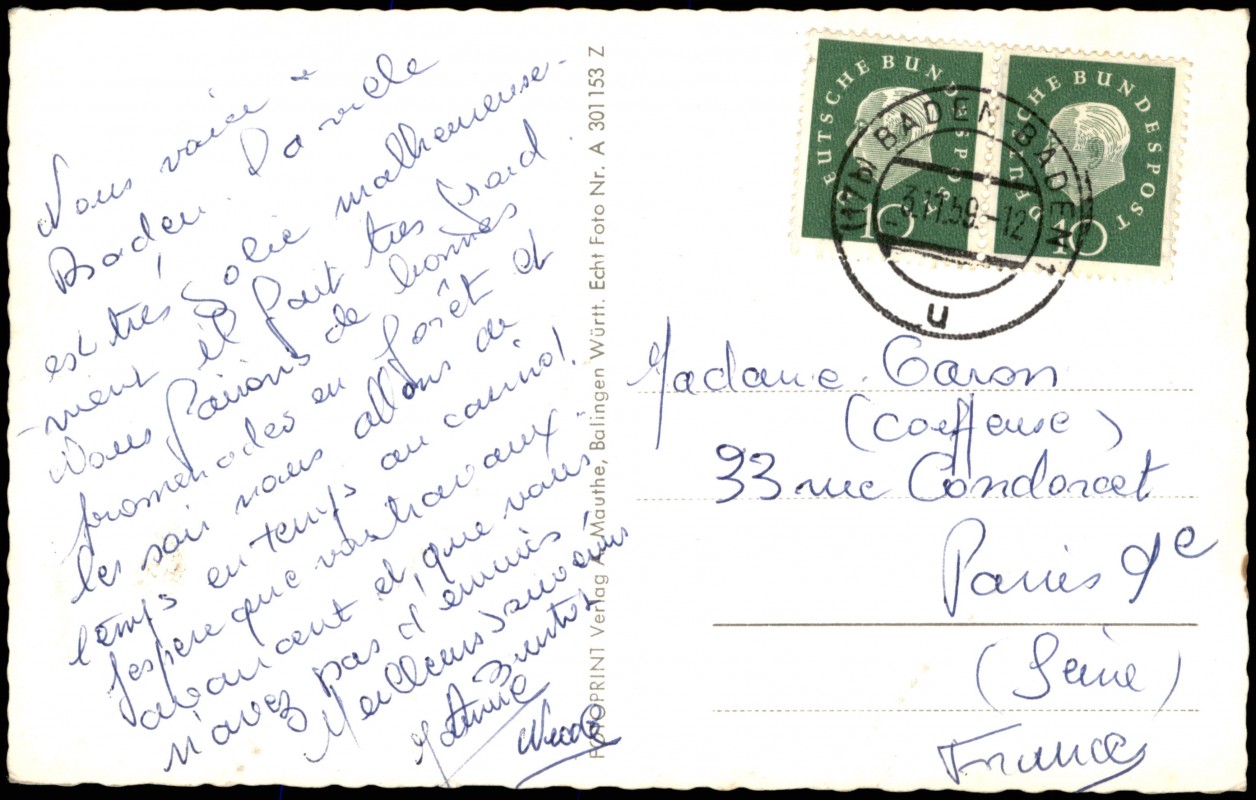 Nous voici à
Baden. La ville
est très jolie malheureuse-
ment il fait très froid.
Nous faisons de bonnes
promenades en forêt et
les soir nous allons de
temps en temps au casino!
J'espère que vos travaux
avancent et que vous
n'avez pas d'ennuis!
Meilleurs souvenirs
FOTOPRINT Verlag A. Mauthe, Balingen Württ. Echt Foto Nr. A 301153 Z
DEUTSCHE BUNDESPOST
10
DEUTSCHE BUNDESPOST
10
(17b) BADEN-BADEN 1
-3.11.59.-12
u
Madame Caron
(Coiffeuse)
33 rue Condorcet
Paris 9e
(Seine)
France